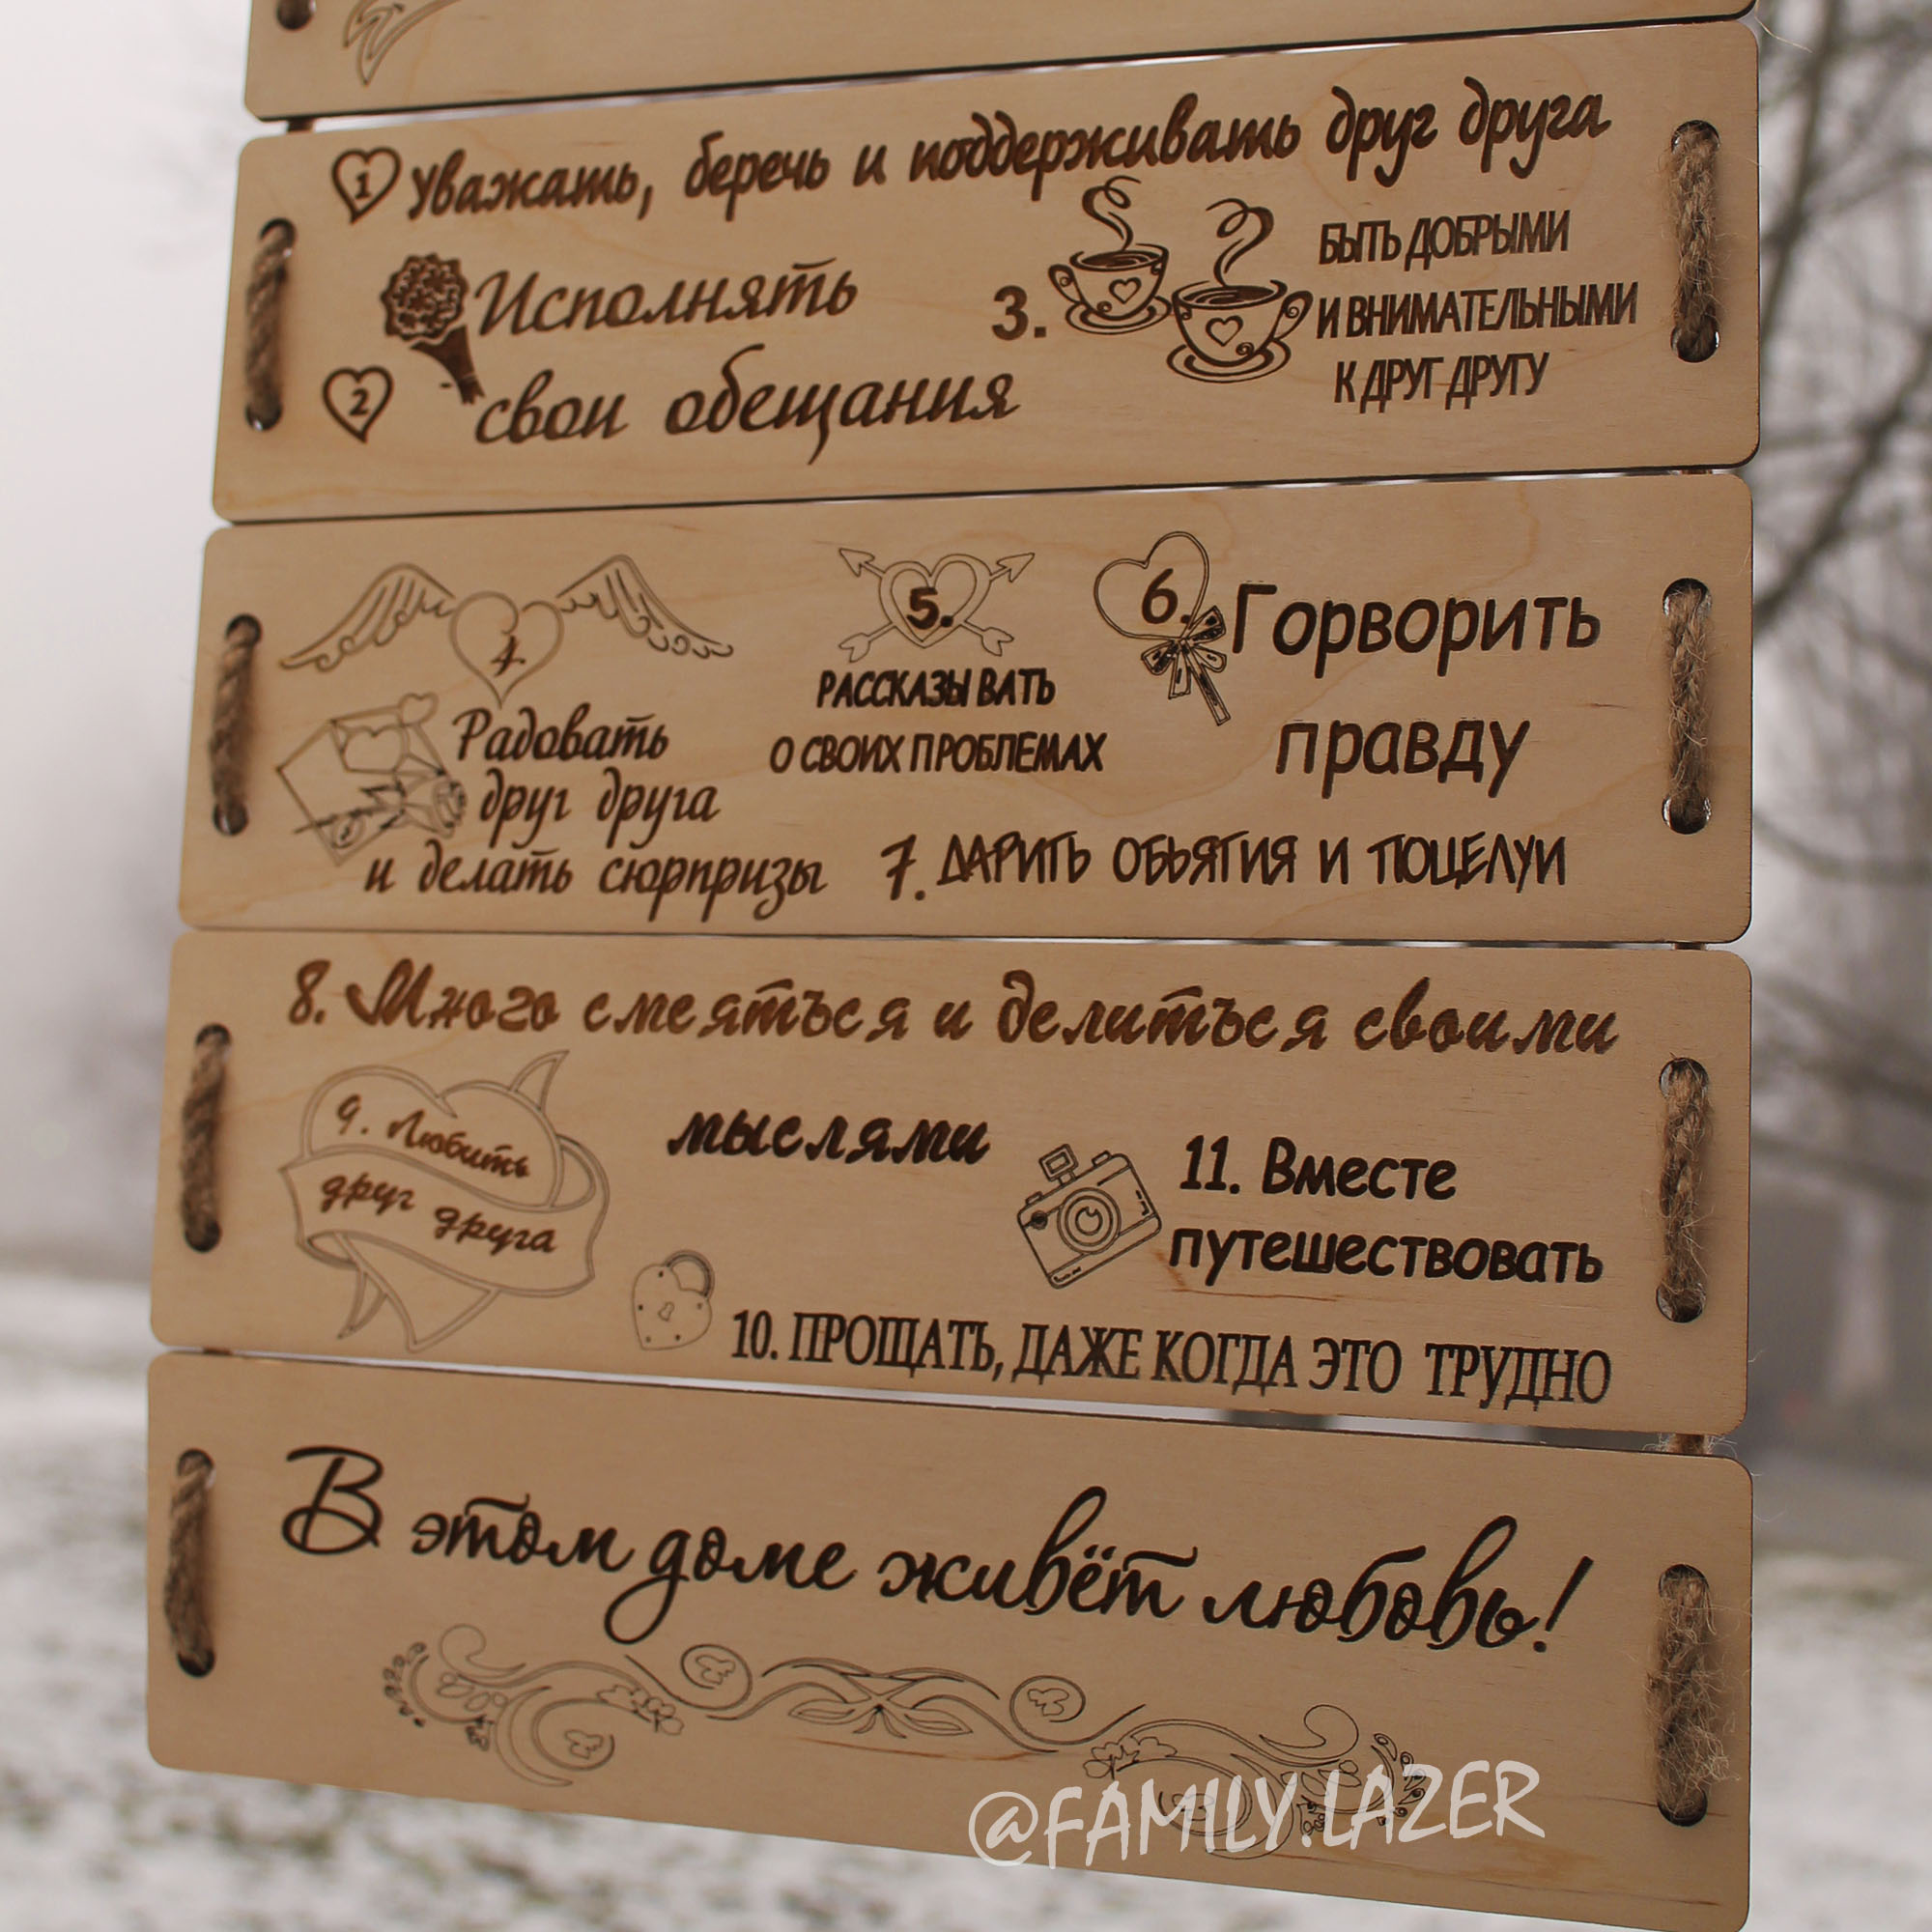 1 Уважать, беречь и поддерживать друг друга
2 Исполнять
свои обещания
3. БЫТЬ ДОБРЫМИ
И ВНИМАТЕЛЬНЫМИ
К ДРУГ ДРУГУ
4.
Радовать
друг друга
и делать сюрпризы
5.
РАССКАЗЫ ВАТЬ
О СВОИХ ПРОБЛЕМАХ
6. Горворить
правду
7. ДАРИТЬ ОБЬЯТИЯ И ПОЦЕЛУИ
8. Много смеяться и делиться своими
мыслями
9. Любить
друг друга
11. Вместе
путешествовать
10. ПРОЩАТЬ, ДАЖЕ КОГДА ЭТО ТРУДНО
В этом доме живёт любовь!
@FAMILY.LAZER